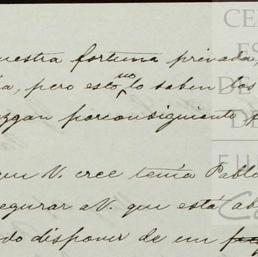 uestra fortuna privada,
a, pero esto no lo saben los
zgan porconsiguiente
en V. cree tenía Pablo
segurar a V. que está ab
do disponer de un
CE
ES
DE
DE
FU